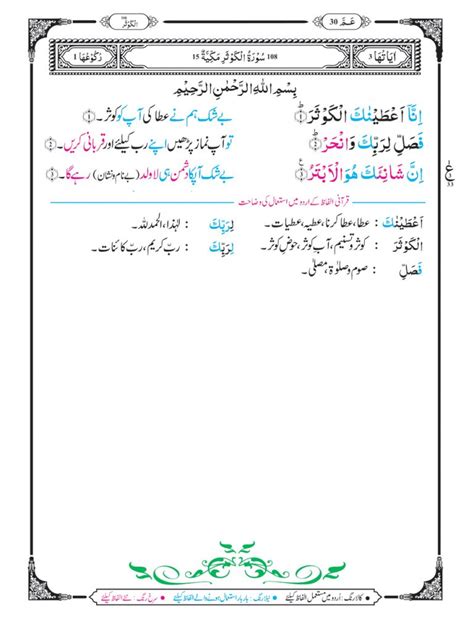 الكوثر
عمّ 30
اٰيَاتُهَا 3
108 سُوْرَةُ الْكَوْثَرِ مَكِّيَّةٌ 15
رُكُوْعُهَا 1
بِسْمِ اللهِ الرَّحْمٰنِ الرَّحِيْمِ
اِنَّاۤ اَعْطَيْنٰكَ الْكَوْثَرَؕ ﴿۱﴾ بے شک ہم نے عطا کی آپ کو کوثر۔ ﴿۱﴾
فَصَلِّ لِرَبِّكَ وَانْحَرْؕ ﴿۲﴾ تو آپ نماز پڑھیں اپنے رب کیلئے اور قربانی کریں۔ ﴿۲﴾
اِنَّ شَانِئَكَ هُوَ الْاَبْتَرُ ﴿۳﴾ بے شک آپ کا دشمن ہی لاولد (بے نام و نشان) رہے گا۔ ﴿۳﴾
قرآنی الفاظ کے اردو میں استعمال کی وضاحت
اَعْطَيْنٰكَ : عطا، عطا کرنا، عطیہ، عطیات۔
لِرَبِّكَ : لہٰذا، الحمدللہ۔
الْكَوْثَرَ : کوثر و تسنیم، آبِ کوثر، حوضِ کوثر۔
لِرَبِّكَ : ربّ کریم، ربّ کائنات۔
فَصَلِّ : صوم و صلوٰۃ، مصلّٰی۔
33
• کالا رنگ : اردو میں مستعمل الفاظ کیلئے • نیلا رنگ : بار بار استعمال ہونے والے الفاظ کیلئے • سرخ رنگ : نئے الفاظ کیلئے